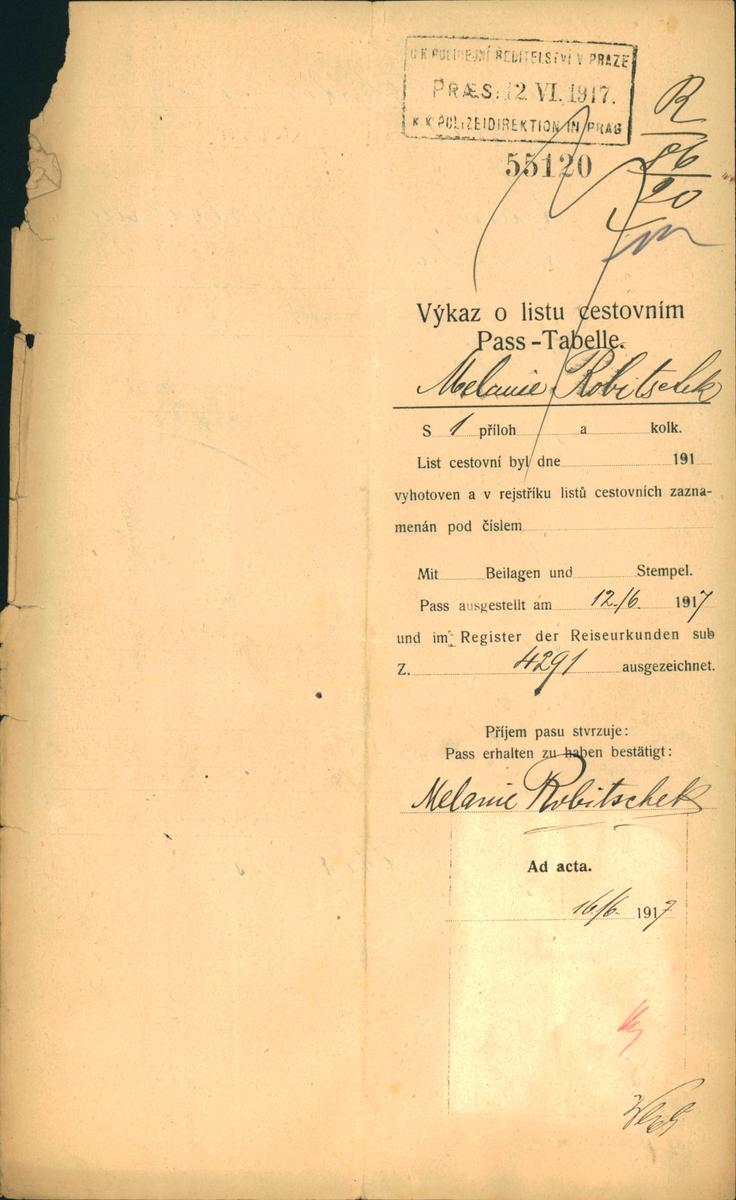 C.K. POLICEJNÍ ŘEDITELSTVÍ V PRAZE
PRÆS: 12. VI. 1917.
K.K. POLIZEIDIREKTION IN PRAG
55120
R
86
20
Výkaz o listu cestovním
Pass-Tabelle.
Melanie Robitschek
S 1 příloh a kolk.
List cestovní byl dne 191
vyhotoven a v rejstříku listů cestovních zazna-
menán pod číslem
Mit Beilagen und Stempel.
Pass ausgestellt am 12./6. 1917
und im Register der Reiseurkunden sub
Z. 4291 ausgezeichnet.
Příjem pasu stvrzuje:
Pass erhalten zu haben bestätigt:
Melanie Robitschek
Ad acta.
16/6. 1917